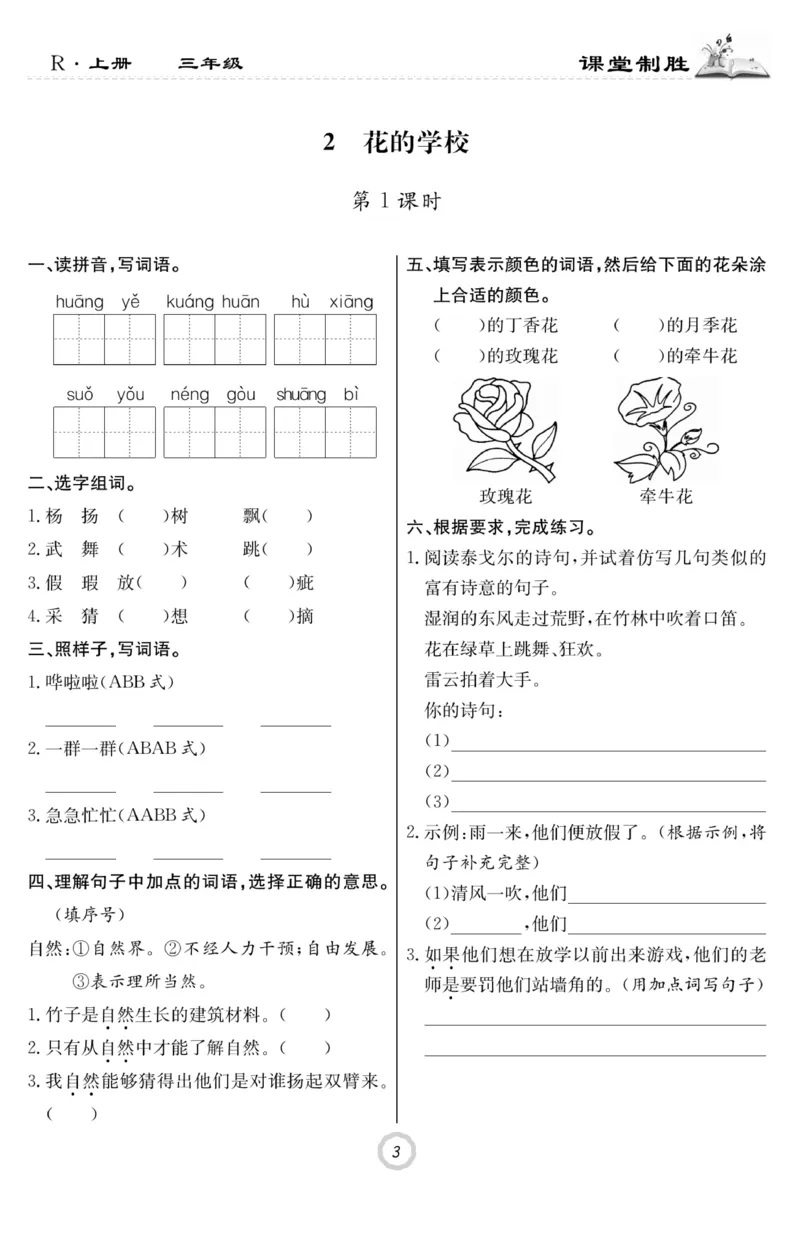 R·上册 三年级
课堂制胜
2 花的学校
第1课时
一、读拼音,写词语。
huāng yě kuáng huān hù xiāng
suǒ yǒu néng gòu shuāng bì
二、选字组词。
1.杨 扬 ( )树 飘( )
2.武 舞 ( )术 跳( )
3.假 瑕 放( ) ( )疵
4.采 猜 ( )想 ( )摘
三、照样子,写词语。
1.哗啦啦(ABB式)
2.一群一群(ABAB式)
3.急急忙忙(AABB式)
四、理解句子中加点的词语,选择正确的意思。
(填序号)
自然:①自然界。②不经人力干预;自由发展。
③表示理所当然。
1.竹子是自然生长的建筑材料。( )
2.只有从自然中才能了解自然。( )
3.我自然能够猜得出他们是对谁扬起双臂来。
( )
五、填写表示颜色的词语,然后给下面的花朵涂
上合适的颜色。
( )的丁香花 ( )的月季花
( )的玫瑰花 ( )的牵牛花
玫瑰花 牵牛花
六、根据要求,完成练习。
1.阅读泰戈尔的诗句,并试着仿写几句类似的
富有诗意的句子。
湿润的东风走过荒野,在竹林中吹着口笛。
花在绿草上跳舞、狂欢。
雷云拍着大手。
你的诗句:
(1)
(2)
(3)
2.示例:雨一来,他们便放假了。(根据示例,将
句子补充完整)
(1)清风一吹,他们
(2) ,他们
3.如果他们想在放学以前出来游戏,他们的老
师是要罚他们站墙角的。(用加点词写句子)
3